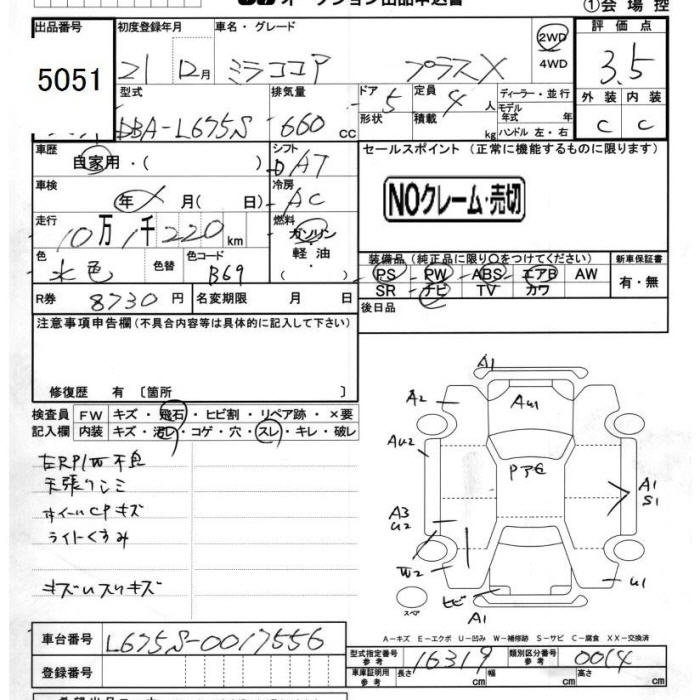 オークション出品申込書 ①会場控
出品番号 初度登録年月 車名・グレード 2WD 評価点
5051 21 12月 ミラココア プラスX 4WD 3.5
型式 排気量 ドア 定員 ディーラー・並行 外装 内装
DBA-L675S 660 cc 5 4 人 モデル年式 年 C C
形状 積載 kg ハンドル 左・右
車歴 シフト セールスポイント (正常に機能するものに限ります)
自家用・( ) DAT
車検 冷房 NOクレーム・売切
年 X 月( 日) AC
走行 燃料
10万1千220km ガソリン・軽油・( )
色 色替 色コード 装備品(純正品に限り○をつけてください) 新車保証書
水色 B69 PS PW ABS エアB AW 有・無
SR ナビ TV カワ
R券 8730円 名変期限 月 日 後日品
注意事項申告欄(不具合内容等は具体的に記入して下さい)
修復歴 有〔箇所 〕
検査員 FW キズ・飛石・ヒビ割・リペア跡・×要
記入欄 内装 キズ・汚レ・コゲ・穴・スレ・キレ・破レ
右RP/W不良
天張りシミ
ホイールCPキズ
ライトくすみ
キズ
A1
A2 AU1
AU2 PアE
A3 U2 A1 S1
W2 U1
ヒビ A1
スペア
A-キズ E-エクボ U-凹み W-補修跡 S-サビ C-腐食 XX-交換済
車台番号 L675S-0017556 型式指定番号 参考 16319 類別区分番号 参考 0014
登録番号 車庫証明用 参考 長さ cm 幅 cm 高さ cm